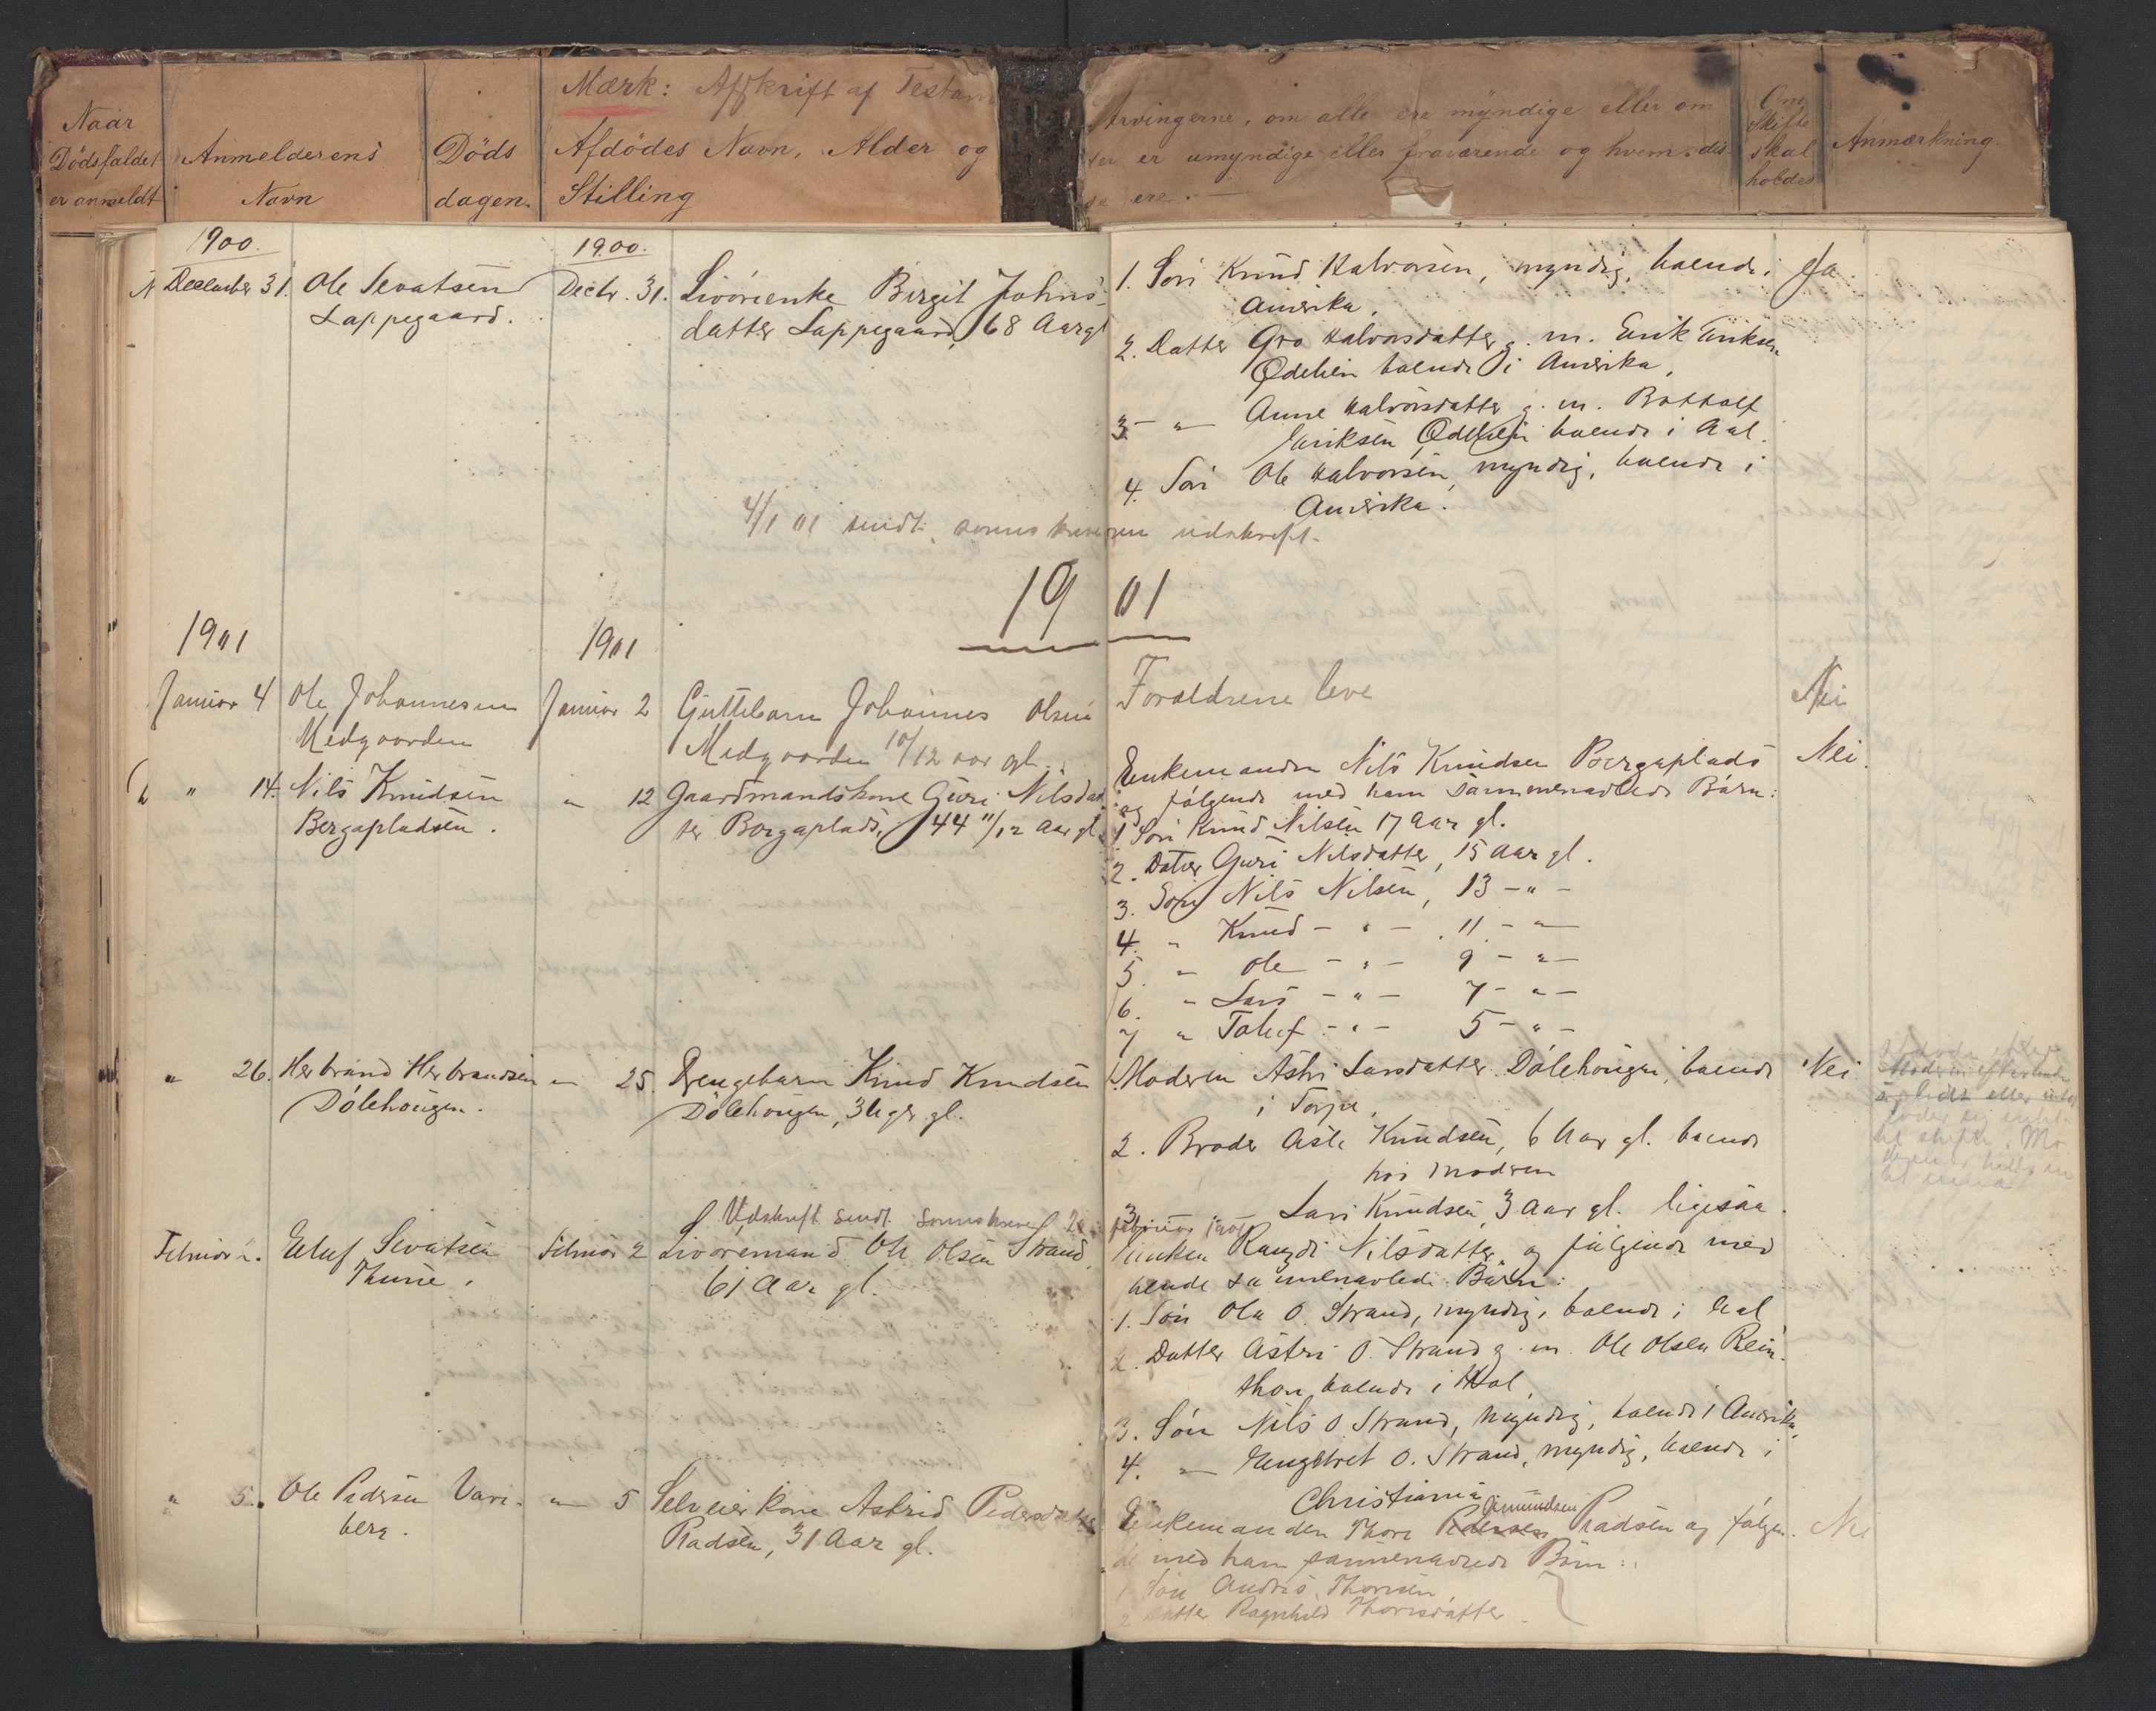 Mærk: Afskrift af Testam
Naar
Dödsfaldet
er anmeldt
Anmelderens
Navn
Döds
dagen.
Afdödes Navn, Alder og
Stilling
Arvingerne, om alle ere myndige eller om
der er umyndige eller fraværende og hvem dis-
se ere.
Om
Skifte
skal
holdes
Anmærkning.
1900.
1900.
December 31.
Ole Sevatsen
Lappegaard.
Decbr. 31.
Livörenke Birgit Johns-
datter Lappegaard, 68 Aar gl
1. Sön Knud Halvorsen, myndig, boende i
Amerika.
Ja.
2. Datter Gro Halvorsdatter g. m. Erik Eriksen
Ødelien boende i Amerika.
3. " Anne Halvorsdatter g. m. Bottolf
Eriksen Ødelien boende i Aal.
4. Sön Ole Halvorsen, myndig, boende i
Amerika.
4/1 01 sendt sorenskriveren udskrift.
1901
1901
1901
Januar 4
Ole Johannesen
Medgaarden
Januar 2
Guttebarn Johannes Olsen
Medgaarden 10/12 aar gl.
Forældrene leve
Nei
" 14.
Nils Knudsen
Bergapladsen.
" 12
Gaardmandskone Guri Nilsdat
ter Bergaplads, 44 11/12 Aar gl.
Enkemanden Nils Knudsen Bergaplads
og fölgende med ham sammenavlede Börn:
Nei.
1 Sön Knud Nilsen 17 Aar gl.
2. Datter Guri Nilsdatter, 15 Aar gl.
3. Sön Nils Nilsen, 13 - " -
4. " Knud - " - 11 - " -
5 " Ole - " - 9 - " -
6. " Lars - " - 7 - " -
7 " Tolef - " - 5 - " -
" 26.
Herbrand Herbrandsen
Dölehougen.
" 25.
Drengebarn Knud Knudsen
Dölehougen, 3 Uger gl.
1. Moderen Astri Larsdatter Dölehougen, boende
i Torpe.
Nei
2. Broder Asle Knudsen, 6 Aar gl. boende
hos Moderen
3 " Lars Knudsen 3 Aar gl. ligesaa.
Udskrift sendt Sorenskriveren 2
februar 1901
Februar 2.
Eiluf Sevatsen
Thune.
Februar 2
Livöremand Ole Olsen Strand,
61 Aar gl.
Enken Rangdi Nilsdatter og fölgende med
hende sammenavlede Börn:
1. Sön Ola O. Strand, myndig, boende i Aal
2. Datter Astri O. Strand g. m. Ole Olsen Rein-
thon boende i Hol,
3. Sön Nils O. Strand, myndig, boende i Amerika,
4. " Engebret O. Strand, myndig, boende i
Christiania
" 5.
Ole Pedersen Vari-
berg.
" 5
Selveierkone Astrid Pedersdatter
Pladsen, 31 Aar gl.
Enkemanden Thore Pedersen Gimundsen Pladsen og fölgen-
de med ham sammenavlede Börn:
Nei
1 Sön Andris Thoresen
2 Datter Ragnhild Thoresdatter.